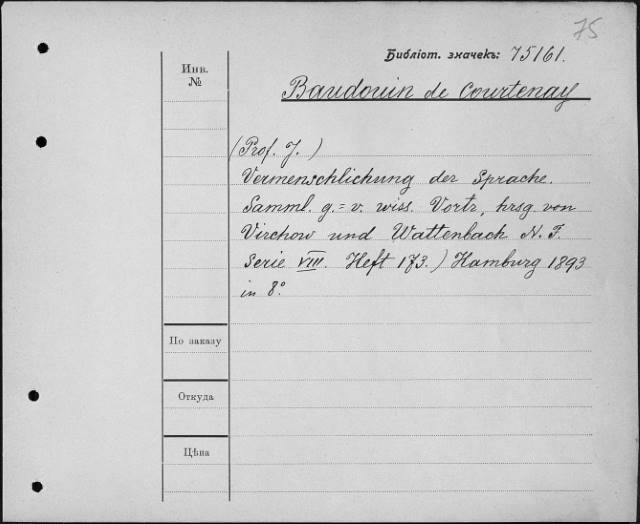 75
Библіот. значекъ: 75161.
Инв.
№
Baudouin de Courtenay
(Prof. J. )
Vermenschlichung der Sprache.
Samml. g.=v. wiss. Vortr., hrsg. von
Virchow und Wattenbach N. F.
Serie VIII. Heft 173.) Hamburg 1893
in 8°.
По заказу
Откуда
Цѣна